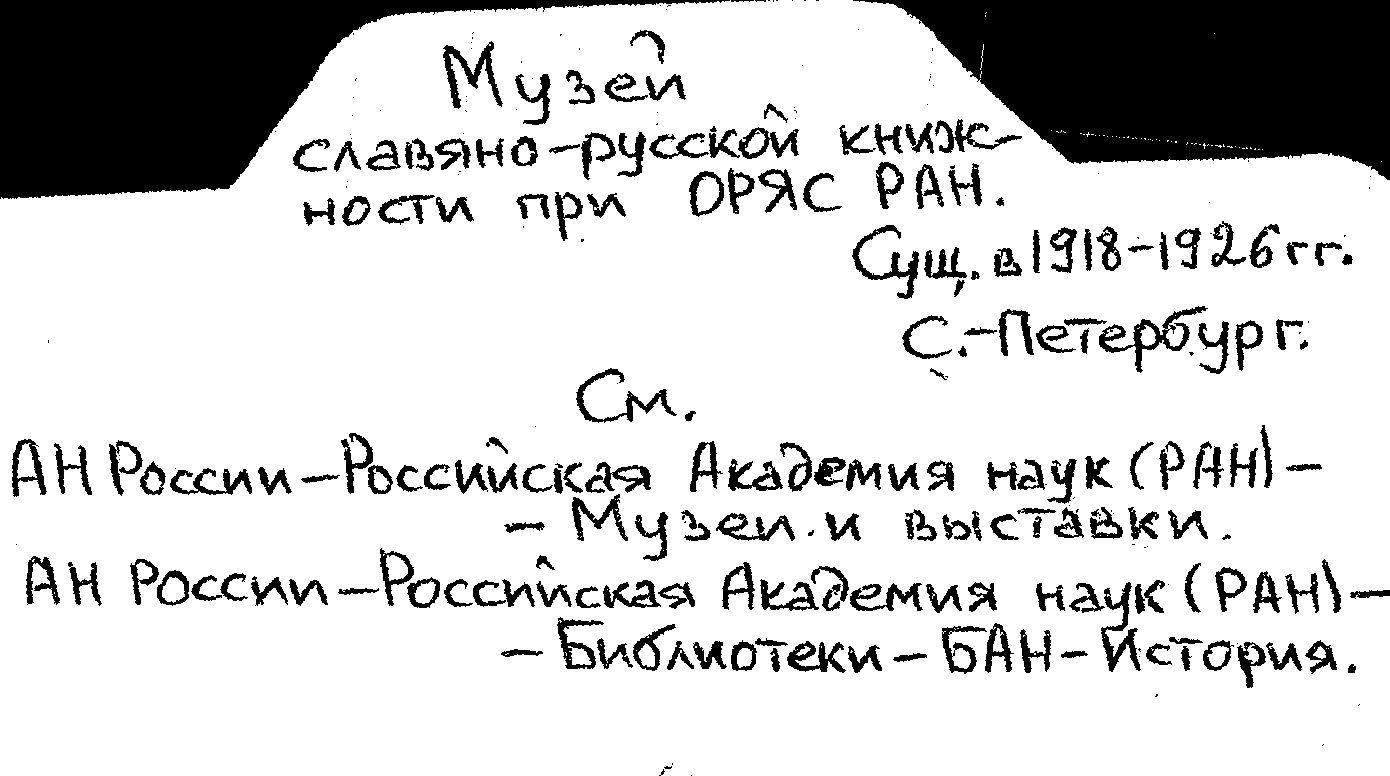 Музей
славяно-русской книж-
ности при ОРЯС РАН.
Сущ. в 1918-1926 гг.
С.-Петербург.
См.
АН России-Российская Академия наук (РАН)-
- Музеи и выставки.
АН России-Российская Академия наук (РАН)-
- Библиотеки - БАН - История.